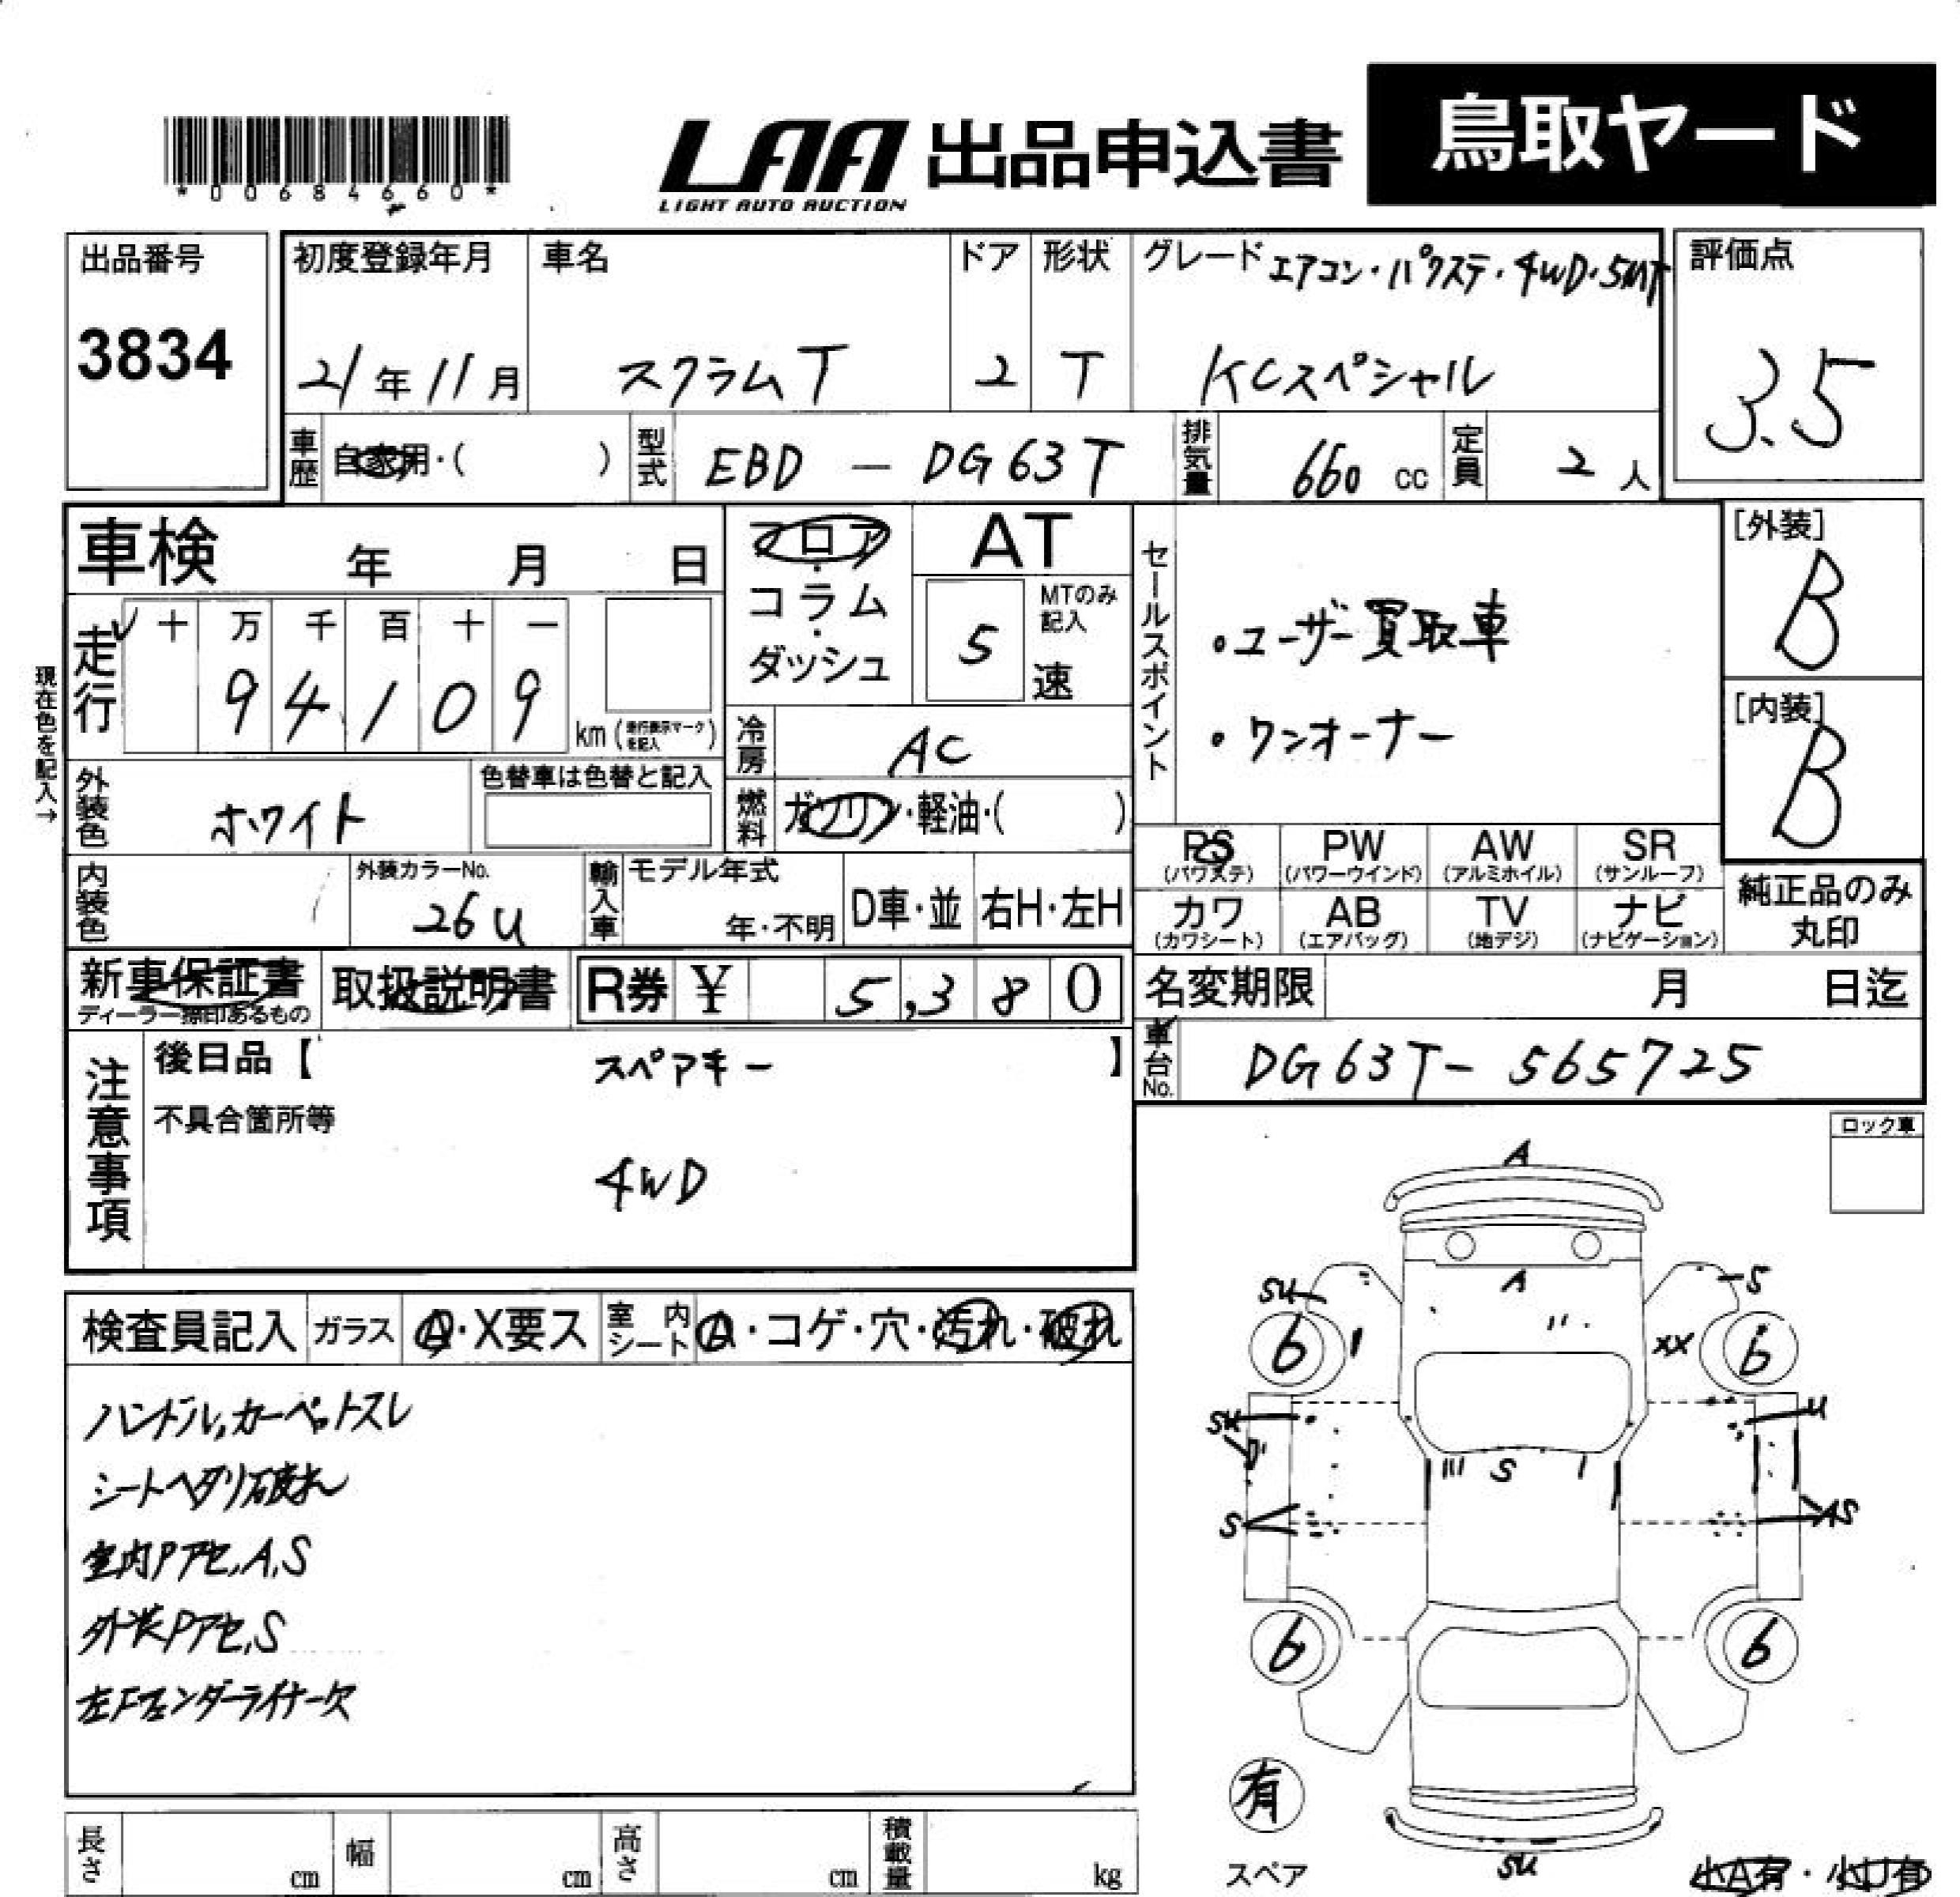 *00684660*
LAA 出品申込書 鳥取ヤード
LIGHT AUTO AUCTION
出品番号 3834
初度登録年月 21年11月
車名 スクラムT
ドア 2
形状 T
グレード エアコン・パワステ・4WD・5MT
KCスペシャル
評価点 3.5
車歴 自家用・( )
型式 EBD - DG63T
排気量 660 cc
定員 2 人
車検 年 月 日
フロア・コラム・ダッシュ
AT
MTのみ記入
5 速
セールスポイント
・ユーザー買取車
・ワンオーナー
[外装] B
[内装] B
現在色を記入→
走行 十 万 千 百 十 一
9 4 1 0 9
km (走行表示マークを記入)
冷房 AC
燃料 ガソリン・軽油・( )
外装色 ホワイト
色替車は色替と記入
内装色
外装カラーNo. 26U
輸入車 モデル年式 年・不明
D車・並 右H・左H
PS (パワステ) PW (パワーウインド) AW (アルミホイル) SR (サンルーフ)
カワ (カワシート) AB (エアバッグ) TV (地デジ) ナビ (ナビゲーション)
純正品のみ丸印
新車保証書
ディーラー捺印あるもの
取扱説明書
R券 ¥ 5,380
名変期限 月 日迄
車台No. DG63T-565725
注意事項
後日品【 スペアキー 】
不具合箇所等
4WD
ロック車
検査員記入 ガラス A・X要ス 室内シート A・コゲ・穴・汚れ・破れ
ハンドル,カーペットスレ
シートヘタリ破れ
室内Pアセ,A,S
外装Pアセ,S
左Fフェンダーライナー欠
A
A
SU
S
6
6
XX
SU
U
S
S
AS
6
6
有
スペア
SU
小A有・小U有
長さ cm 幅 cm 高さ cm 積載量 kg